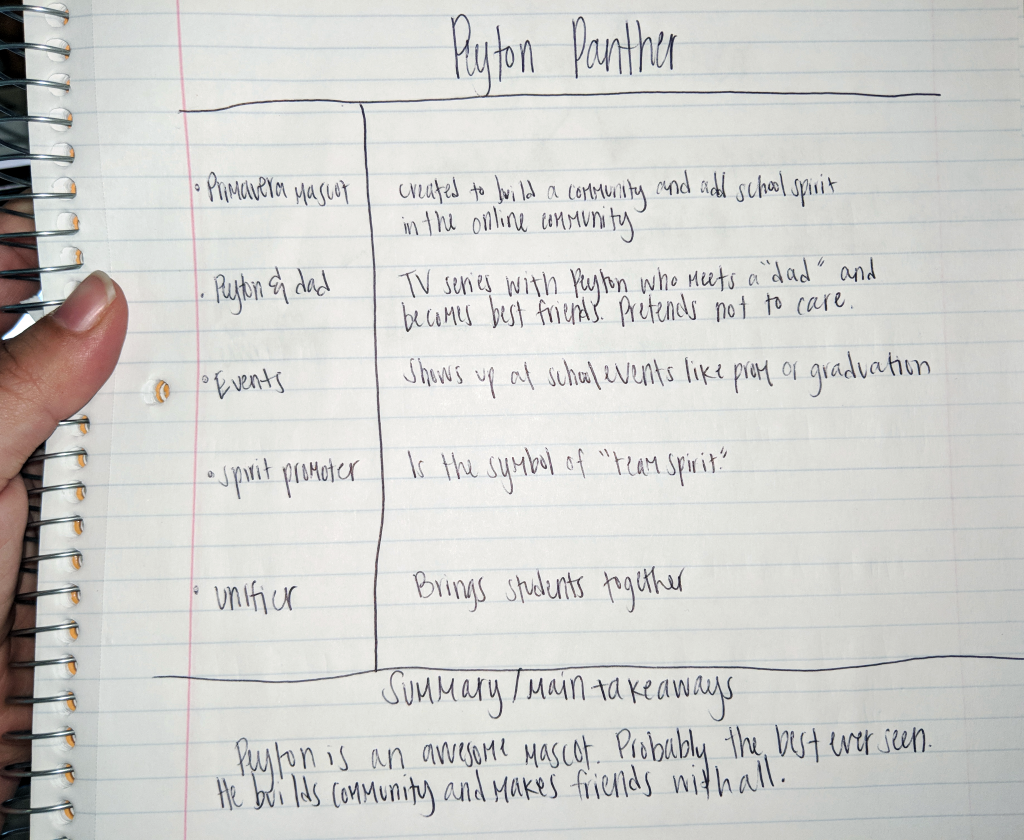 Peyton Panther
• Primavera Mascot created to build a community and add school spirit
in the online community
• Peyton & dad TV series with Peyton who meets a "dad" and
becomes best friends. Pretends not to care.
• Events Shows up at school events like prom or graduation
• spirit promoter Is the symbol of "team spirit."
• unifier Brings students together
Summary/Main takeaways
Peyton is an awesome mascot. Probably the best ever seen.
He builds community and makes friends with all.